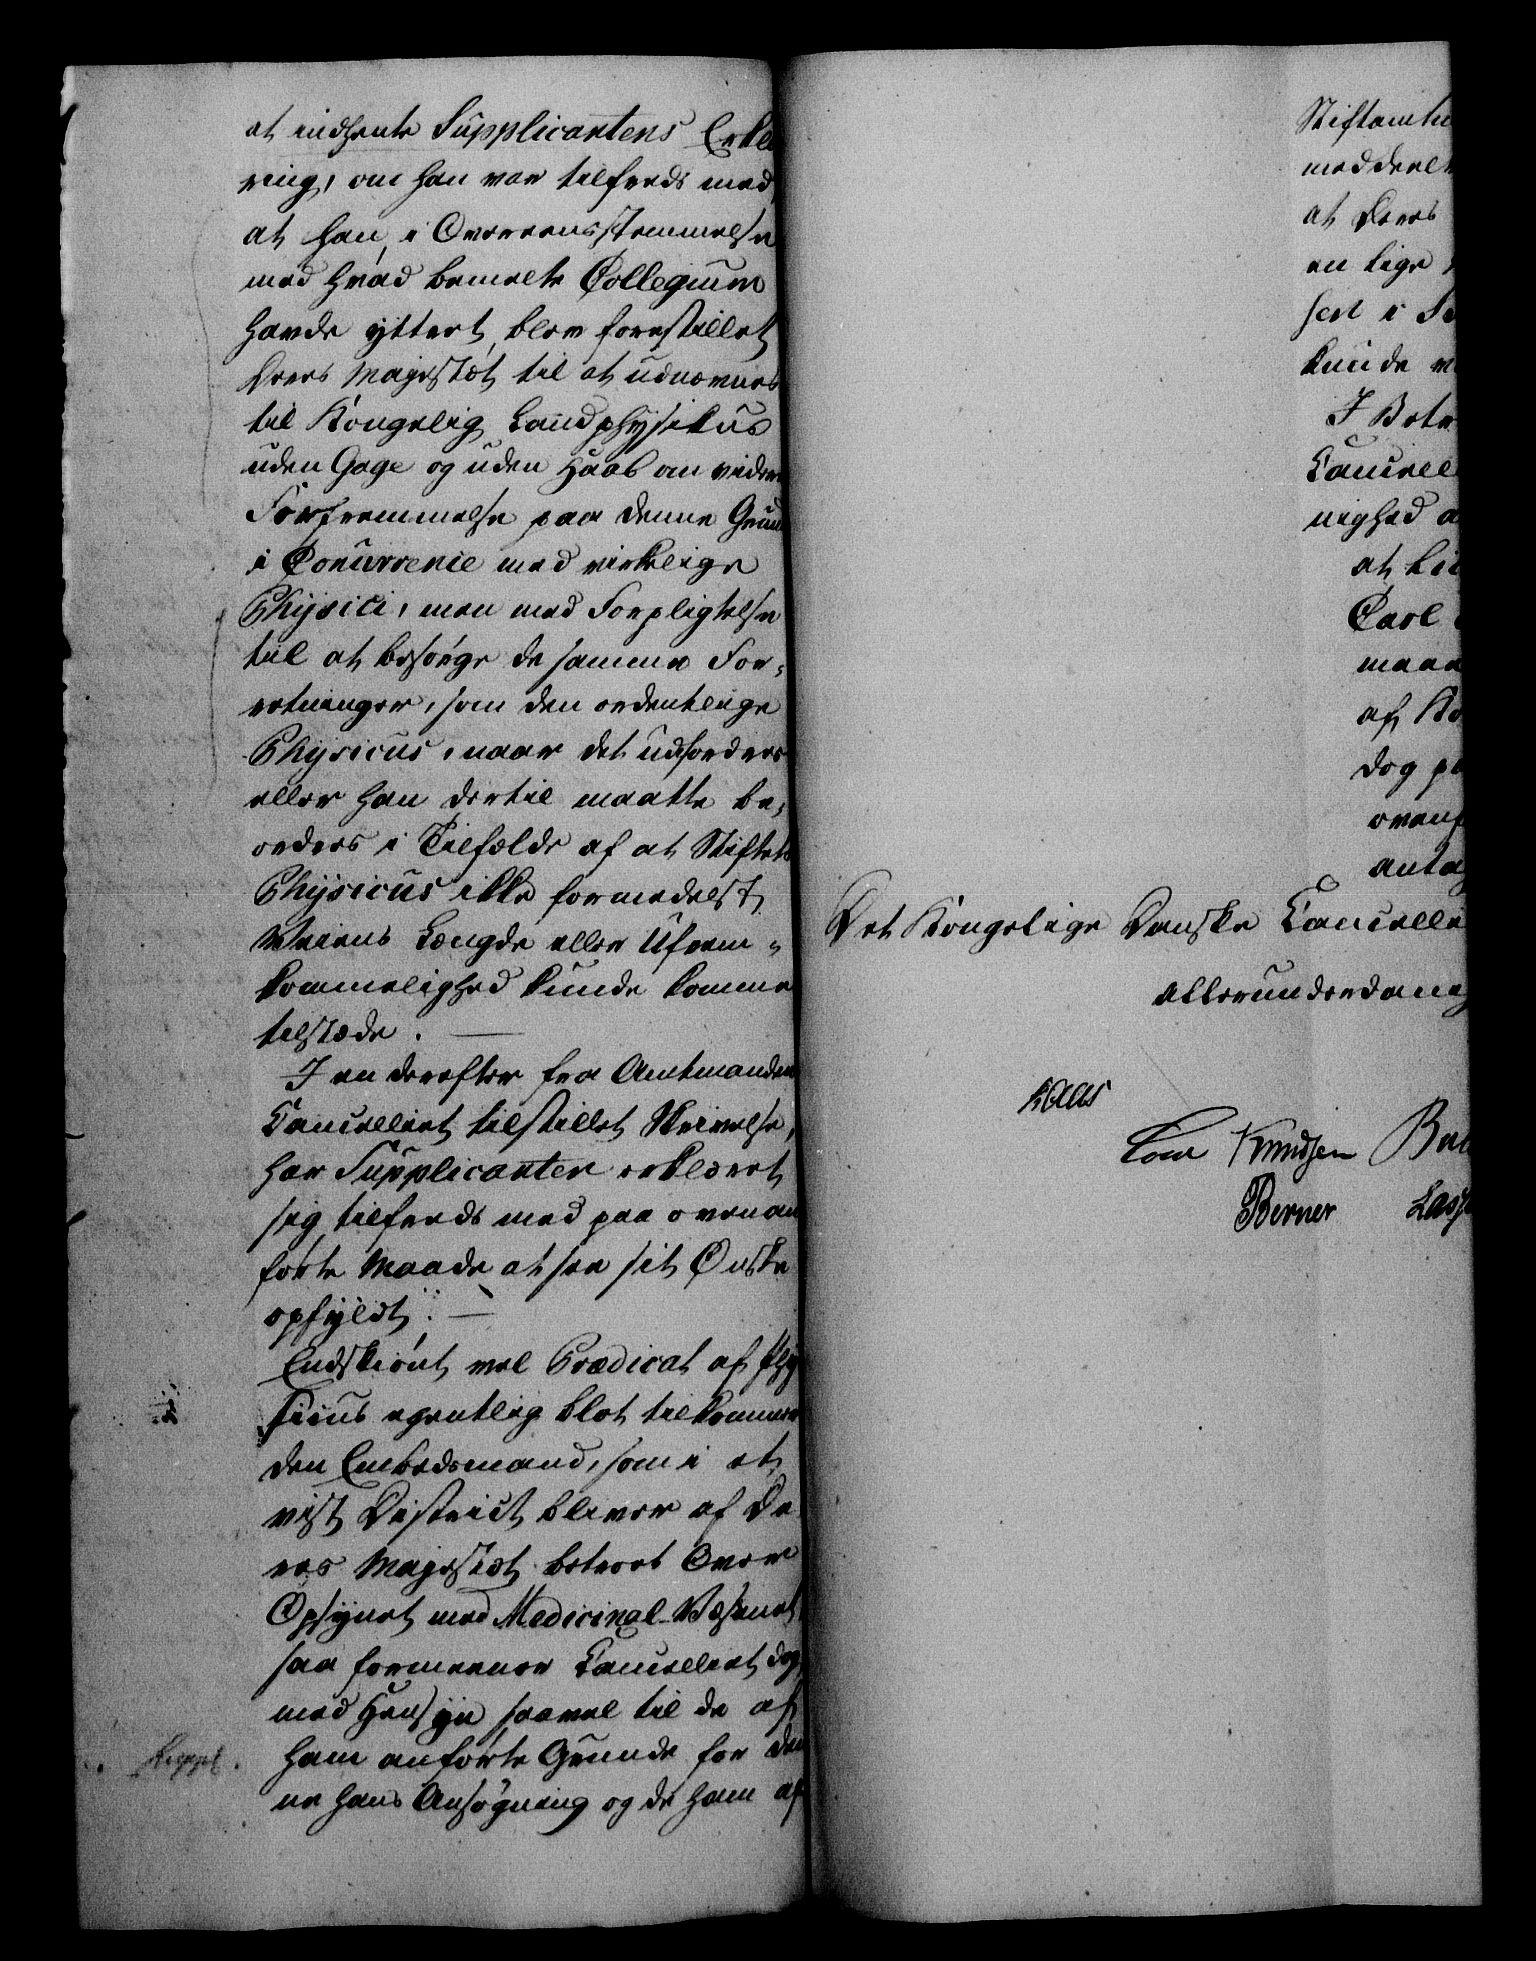 at indhente Supplicantens Erklæ
ring, om han var tilfreds med,
at han, i Overeensstemmelse
med hvad bemelte Collegium
havde yttert, blev forestillet
Deres Majestæt til at udnævnes
til Kongelig Landphysikus
uden Gage og uden Haab om videre
Forfremmelse paa denne Grund
i Concurrence med virkelige
Physici, men med Forpligtelse
til at besørge de samme For-
retninger, som den ordentlige
Physicus, naar det udfordres
eller han dertil maatte be-
ordres i Tilfælde af at Stiftets
Physicus ikke formedelst
Veiens Længde eller Ufrem-
kommelighed kunde komme
tilstæde. —
I en derefter fra Amtmanden
Cancelliet tilstillet Skrivelse,
har Supplicanten erklæret
sig tilfreds med paa ovenan
førte Maade at see sit Ønske
opfyldt. —
Endskiønt vel Prædicat af Phy
sicus egentlig blot tilkommer
den Embedsmand, som i et
vist District bliver af De
res Majestæt betroet Over
Opsynet med Medicinal-Væsenet,
saa formeener Cancelliet dog,
med Hensyn saavel til de af
ham anførte Grunde for den
ne hans Ansøgning og de ham af
Stiftamtm
meddeelt
at Deres
en lige
sest i
kunde
I Betr
Cancell
nighed a
at
Carl
maa
af Ko
dog p
ovenf
antag
Det Kongelige Danske Cancellie
allerunderdanig
Kaas
Knudsen
Berner Lass